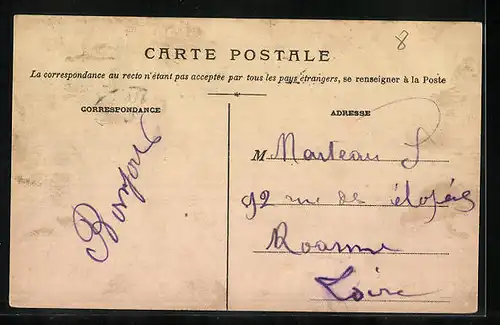 8
CARTE POSTALE
La correspondance au recto n'étant pas acceptée par tous les pays étrangers, se renseigner à la Poste
CORRESPONDANCE
Bonjour
ADRESSE
M Marteau L
92 rue de
Roanne
Loire